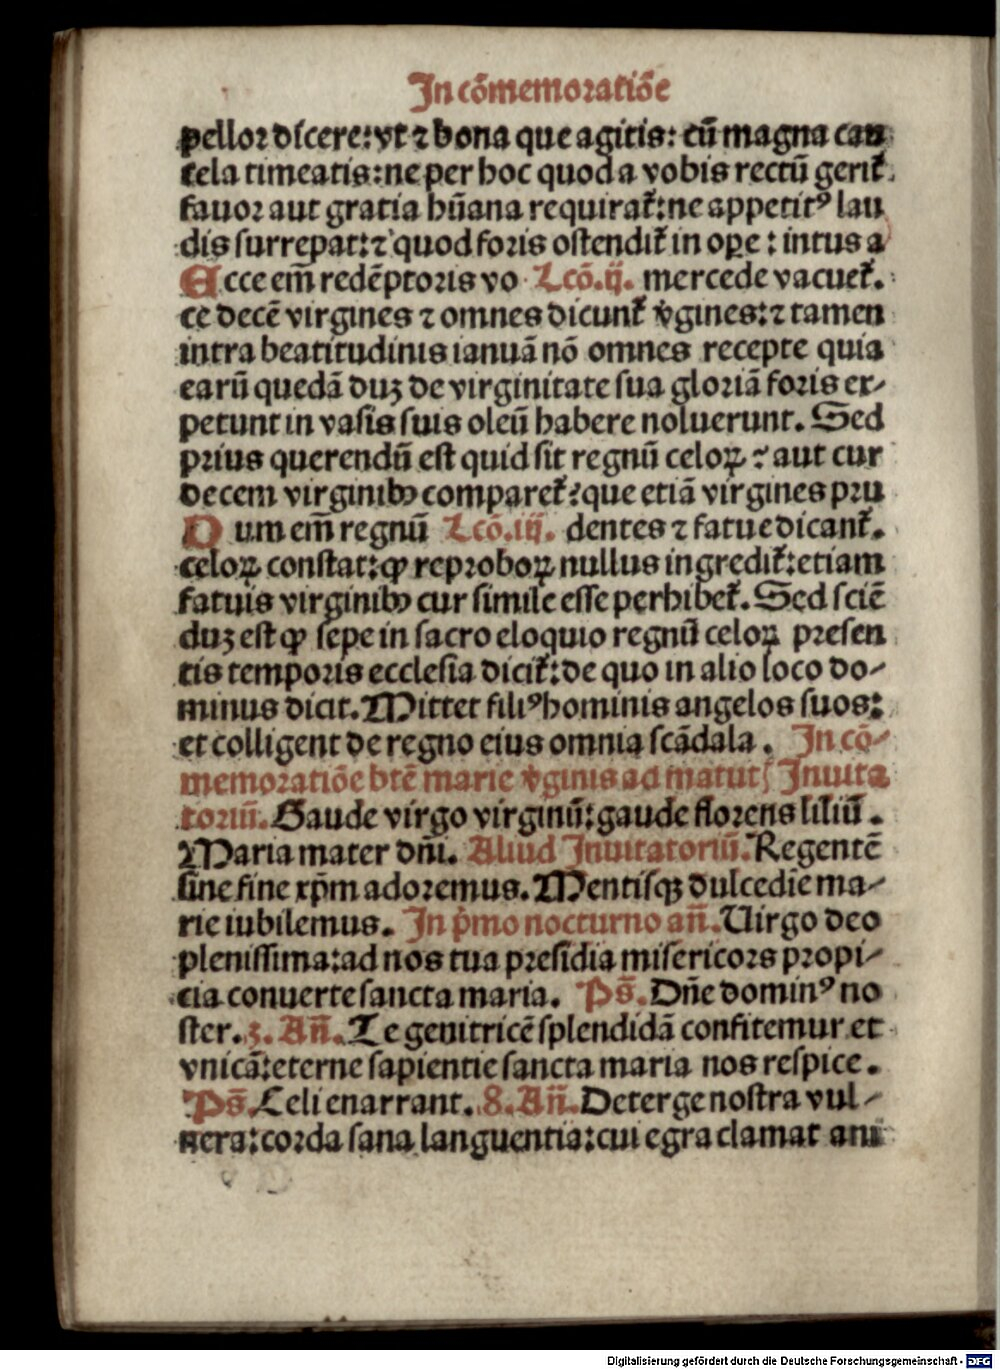 In cōmemoratiōe
pellor dicere: vt ⁊ bona que agitis: cū magna cau
tela timeatis: ne per hoc quod a vobis rectū gerit᷑.
fauor aut gratia hūana requirat᷑: ne appetitꝰ lau
dis surrepat: ⁊ quod foris ostendit᷑ in ope: intus a
Ecce em̄ redēptoris vo Lcō.ij. mercede vacuet᷑.
ce decē virgines ⁊ omnes dicunt᷑ v̓gines: ⁊ tamen
intra beatitudinis ianuā nō omnes recepte quia
earū quedā duꝫ de virginitate sua gloriā foris ex-
petunt in vasis suis oleū habere noluerunt. Sed
prius querendū est quid sit regnū celoꝝ: aut cur
decem virginibꝰ comparet᷑: que etiā virgines pru
Dum em̄ regnū Lcō.iij. dentes ⁊ fatue dicant᷑.
celoꝝ constat: ꝙ reproboꝝ nullus ingredit᷑: etiam
fatuis virginibꝰ cur simile esse perhibet᷑. Sed sciē
duꝫ est ꝙ sepe in sacro eloquio regnū celoꝝ presen
tis temporis ecclesia dicit᷑: de quo in alio loco do-
minus dicit. Mittet filiꝰ hominis angelos suos:
et colligent de regno eius omnia scādala. In cō-
memoratiōe btē marie v̓ginis ad matut᷑ Inuita
toriū. Gaude virgo virginū: gaude florens liliū.
Maria mater dn̄i. Aliud Inuitatoriū. Regentē
sine fine xp̄m adoremus. Mentisqꝫ dulcedīe ma-
rie iubilemus. In p̓mo nocturno an̄. Uirgo deo
plenissima: ad nos tua presidia misericors propi-
cia conuerte sancta maria. Ps̄. Dn̄e dominꝰ no
ster. 3. An̄. Te genitricē splendidā confitemur et
vnicā: eterne sapientie sancta maria nos respice.
Ps̄. Celi enarrant. 8. An̄. Deterge nostra vul-
nera: corda sana languentia: cui egra clamat ani
Digitalisierung gefördert durch die Deutsche Forschungsgemeinschaft - DFG